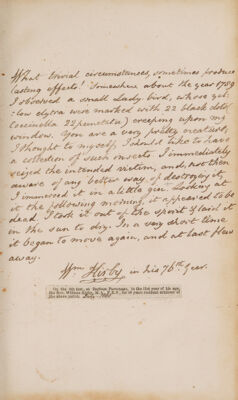 What trivial circumstances, sometimes produce
lasting effects! Somewhere about the year 1789
I observed a small Lady-bird, whose yel-
-low elytra was marked with 22 black dots (
Coccinella 22punctata) creeping upon my
window. You are a very pretty creature,
I thought to myself, I should like to have
a collection of such insects. I immediately
seized the intended victim, and not then
aware of any better way of destroying it,
I immersed it in a little gin. Looking at
it the following morning, it appeared to be
dead. I took it out of the spirit & laid it
in the sun to dry. In a very short time
it began to move again, and at last flew
away.
Wm Kirby in his 76th Year.
On the 4th inst., at Barham Parsonage, in the 91st year of his age,
the Rev. William Kirby, M.A., F.R.S., for 68 years resident minister of
the above parish. July